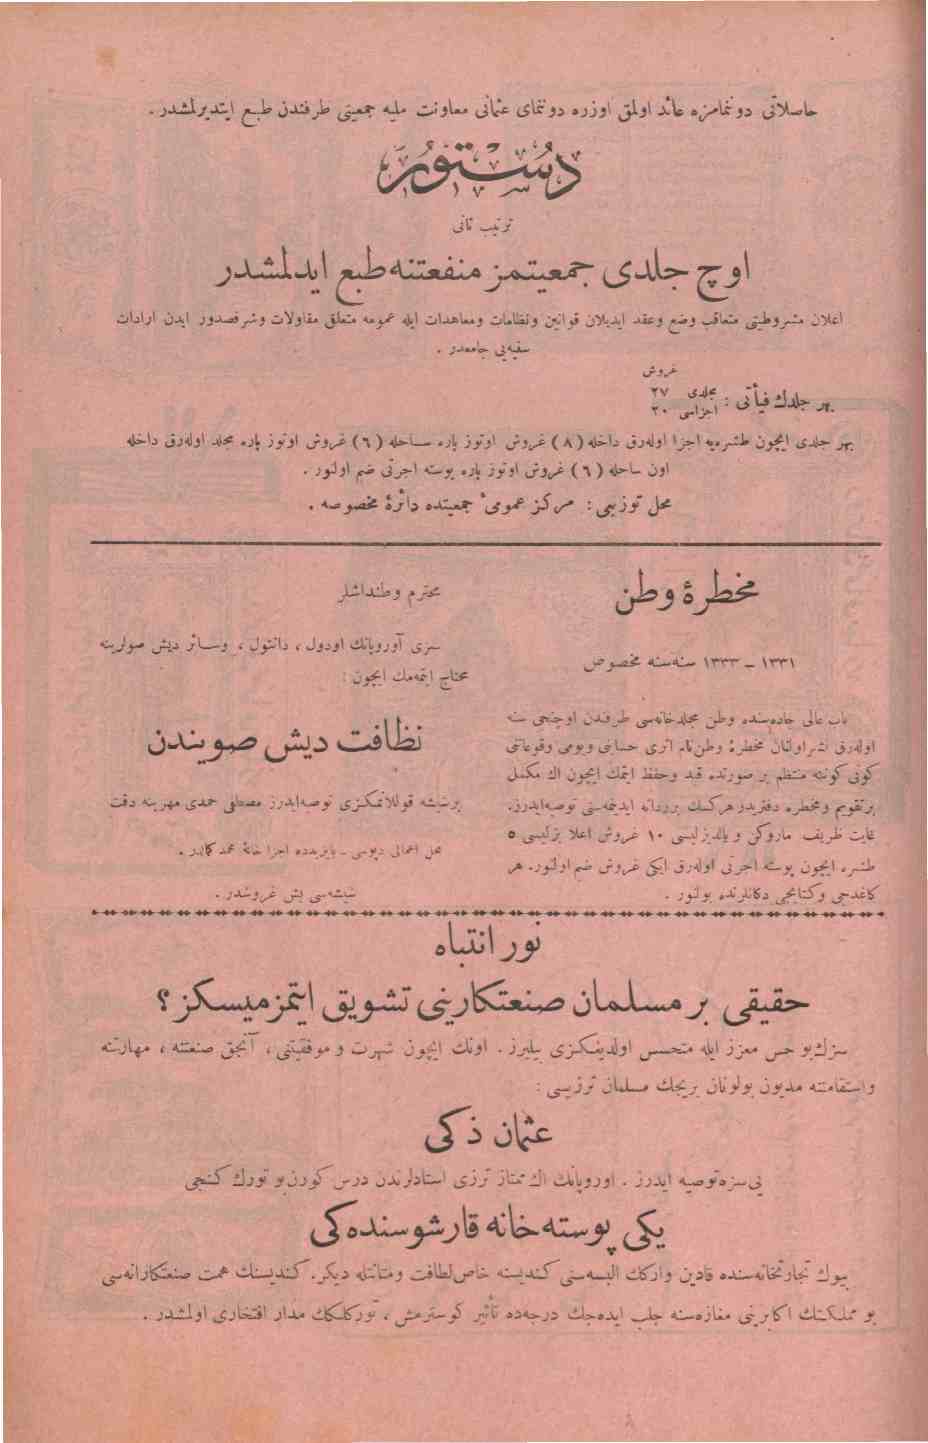 حاصلاتی دوننمامزه عائد اولمق اوزره دوننمای عثمانی معاونت ملیه جمعیتی طرفندن طبع ایتدیرلمشدر .
دستور
ترتیب ثانی
اوچ جلدی جمعیتمز منفعتنه طبع ایدلمشدر
اعلان مشروطیتی متعاقب وضع وعقد ایدیلان قوانین ونظامات ومعاهدات ایله عمومه متعلق مقاولات وشرفصدور ایدن ارادات
سنیه‌یی جامعدر .
غروش
بهر جلدك فیأتی : مجلدی ٢٧
اجزاسی ٢٠
بهر جلدی ایچون طشره‌یه اجزا اوله‌رق داخله (٨) غروش اوتوز پاره ساحله (٦) غروش اوتوز پاره مجلد اوله‌رق داخله
اون ساحله (٦) غروش اوتوز پاره پوسته اجرتی ضم اولنور .
محل توزیعی : مرکز عمومیٔ جمعیتده دائرۀ مخصوصه .
مخطرۀ وطن
١٣٣١ ــ ١٣٣٣ سنه‌سنه مخصوص
باب عالی جاده‌سنده وطن مجلدخانه‌سی طرفندن اوچنجی سنه
اوله‌رق نشر اولنان مخطرۀ وطن نام اثری حسابی ویومی وقوعاتی
کونی کوننه منتظم بر صورتده قید وحفظ ایتمك ایچون اك مکمل
بر تقویم ومخطره دفتریدر هرکسك بردانه ایدینمه‌سنی توصیه ایدرز.
غایت ظریف ماروکن و یالدیزلیسی ١٠ غروش اعلا بزلیسی ٥
طشره ایچون پوسته اجرتی اوله‌رق ایکی غروش ضم اولنور. هر
کاغدجی وکتابجی دکانلرنده بولنور .
محترم وطنداشلر
سزی آوروپانك اودول ، دانتول ، وسائر دیش صولرینه
محتاج ایتمه‌مك ایچون :
نظافت دیش صویندن
برشیشه قوللانمکزی توصیه‌ایدرز مصطفی حمدی مهرینه دقت
محل اعمالی دپوسی ــ بایزیدده اجزا خانۀ محمد کاملدر .
شیشه‌سی بش غروشدر .
نور انتباه
حقیقی بر مسلمان صنعتکارینی تشویق ایتمزمیسکز ؟
سزك بو حس معزز ایله متحسس اولدیغکزی بیلیرز . اونك ایچون شهرت و موفقیتنی ، آنجق صنعتنه ، مهارتنه
واستقامتنه مدیون بولونان بریجك مسلمان ترزیسی :
عثمان ذکی
یی سزه توصیه ایدرز . اوروپانك اك ممتاز ترزی استادلرندن درس کورن بو تورك کنجی
یکی پوسته خانه قارشوسنده‌کی
بیوك تجارتخانه‌سنده قادین وارکك البسه‌سنی کندیسنه خاص لطافت ومتانتله دیکر. کندیسنك همت صنعتکارانه‌سی
بو مملکتك اکابرینی مغازه‌سنه جلب ایده‌جك درجه‌ده تأثیر کوسترمش ، تورکلکك مدار افتخاری اولمشدر .